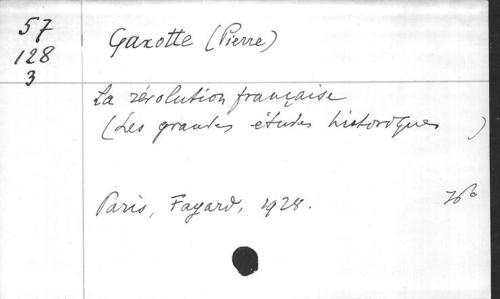 57
128
3
Gaxotte (Pierre)
La révolution française
(Les grandes études historiques )
Paris, Fayard, 1928.